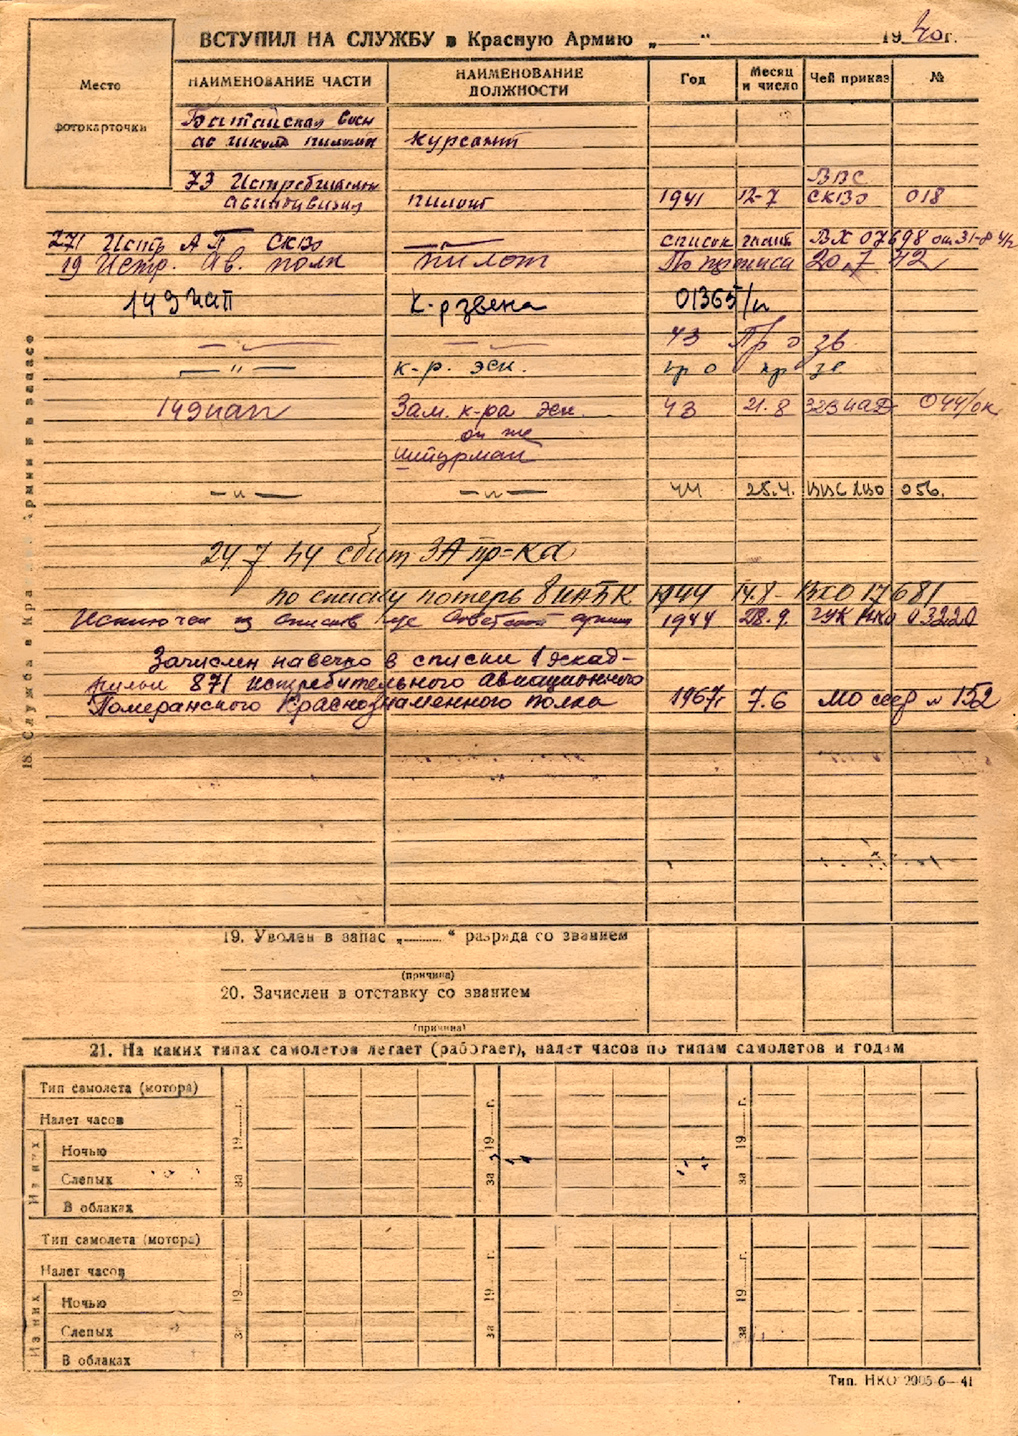 ВСТУПИЛ НА СЛУЖБУ в Красную Армию „ “ 1940г.
Место
фотокарточки
НАИМЕНОВАНИЕ ЧАСТИ
НАИМЕНОВАНИЕ ДОЛЖНОСТИ
Год
Месяц и число
Чей приказ
№
Батайская воен
ав школа пилотов курсант
73 Истребительн ВВС
авиадивизия пилот 1941 12-7 СКВО 018
271 Истр АП СКВО —〃— список ВХ 07698 от 31-8
19 Истр. Ав. полк пилот 20.7 42
149 иап К-р звена 01365/н
—〃— —〃— 43 Пр о зв.
—〃— к-р. эск. пр о пр зв
149 иап Зам. к-ра эск. 43 21.8 323 иад 044/ок
он же
штурман
—〃— —〃— 44 25.4. 056.
24.7 44 сбит ЗА пр-ка
по списку потерь 8 иабк 1944 14.8 ВХО 17681
Исключен из списков 1944 28.9. ГУК НКО 03220
Зачислен навечно в списки 1 эскад-
рильи 871 истребительного авиационного
Померанского Краснознаменного полка 1967г 7.6 МО ссср № 152
18. Служба в Кра Армии и в запасе
19. Уволен в запас „ “ разряда со званием
(причина)
20. Зачислен в отставку со званием
(причина)
21. На каких типах самолетов летает (работает), налет часов по типам самолетов и годам
Тип самолета (мотора)
Налет часов
Из них
Ночью
Слепых
В облаках
за 19 г.
за 19 г.
за 19 г.
Тип самолета (мотора)
Налет часов
Из них
Ночью
Слепых
В облаках
за 19 г.
за 19 г.
за 19 г.
Тип. НКО 2905 6—41